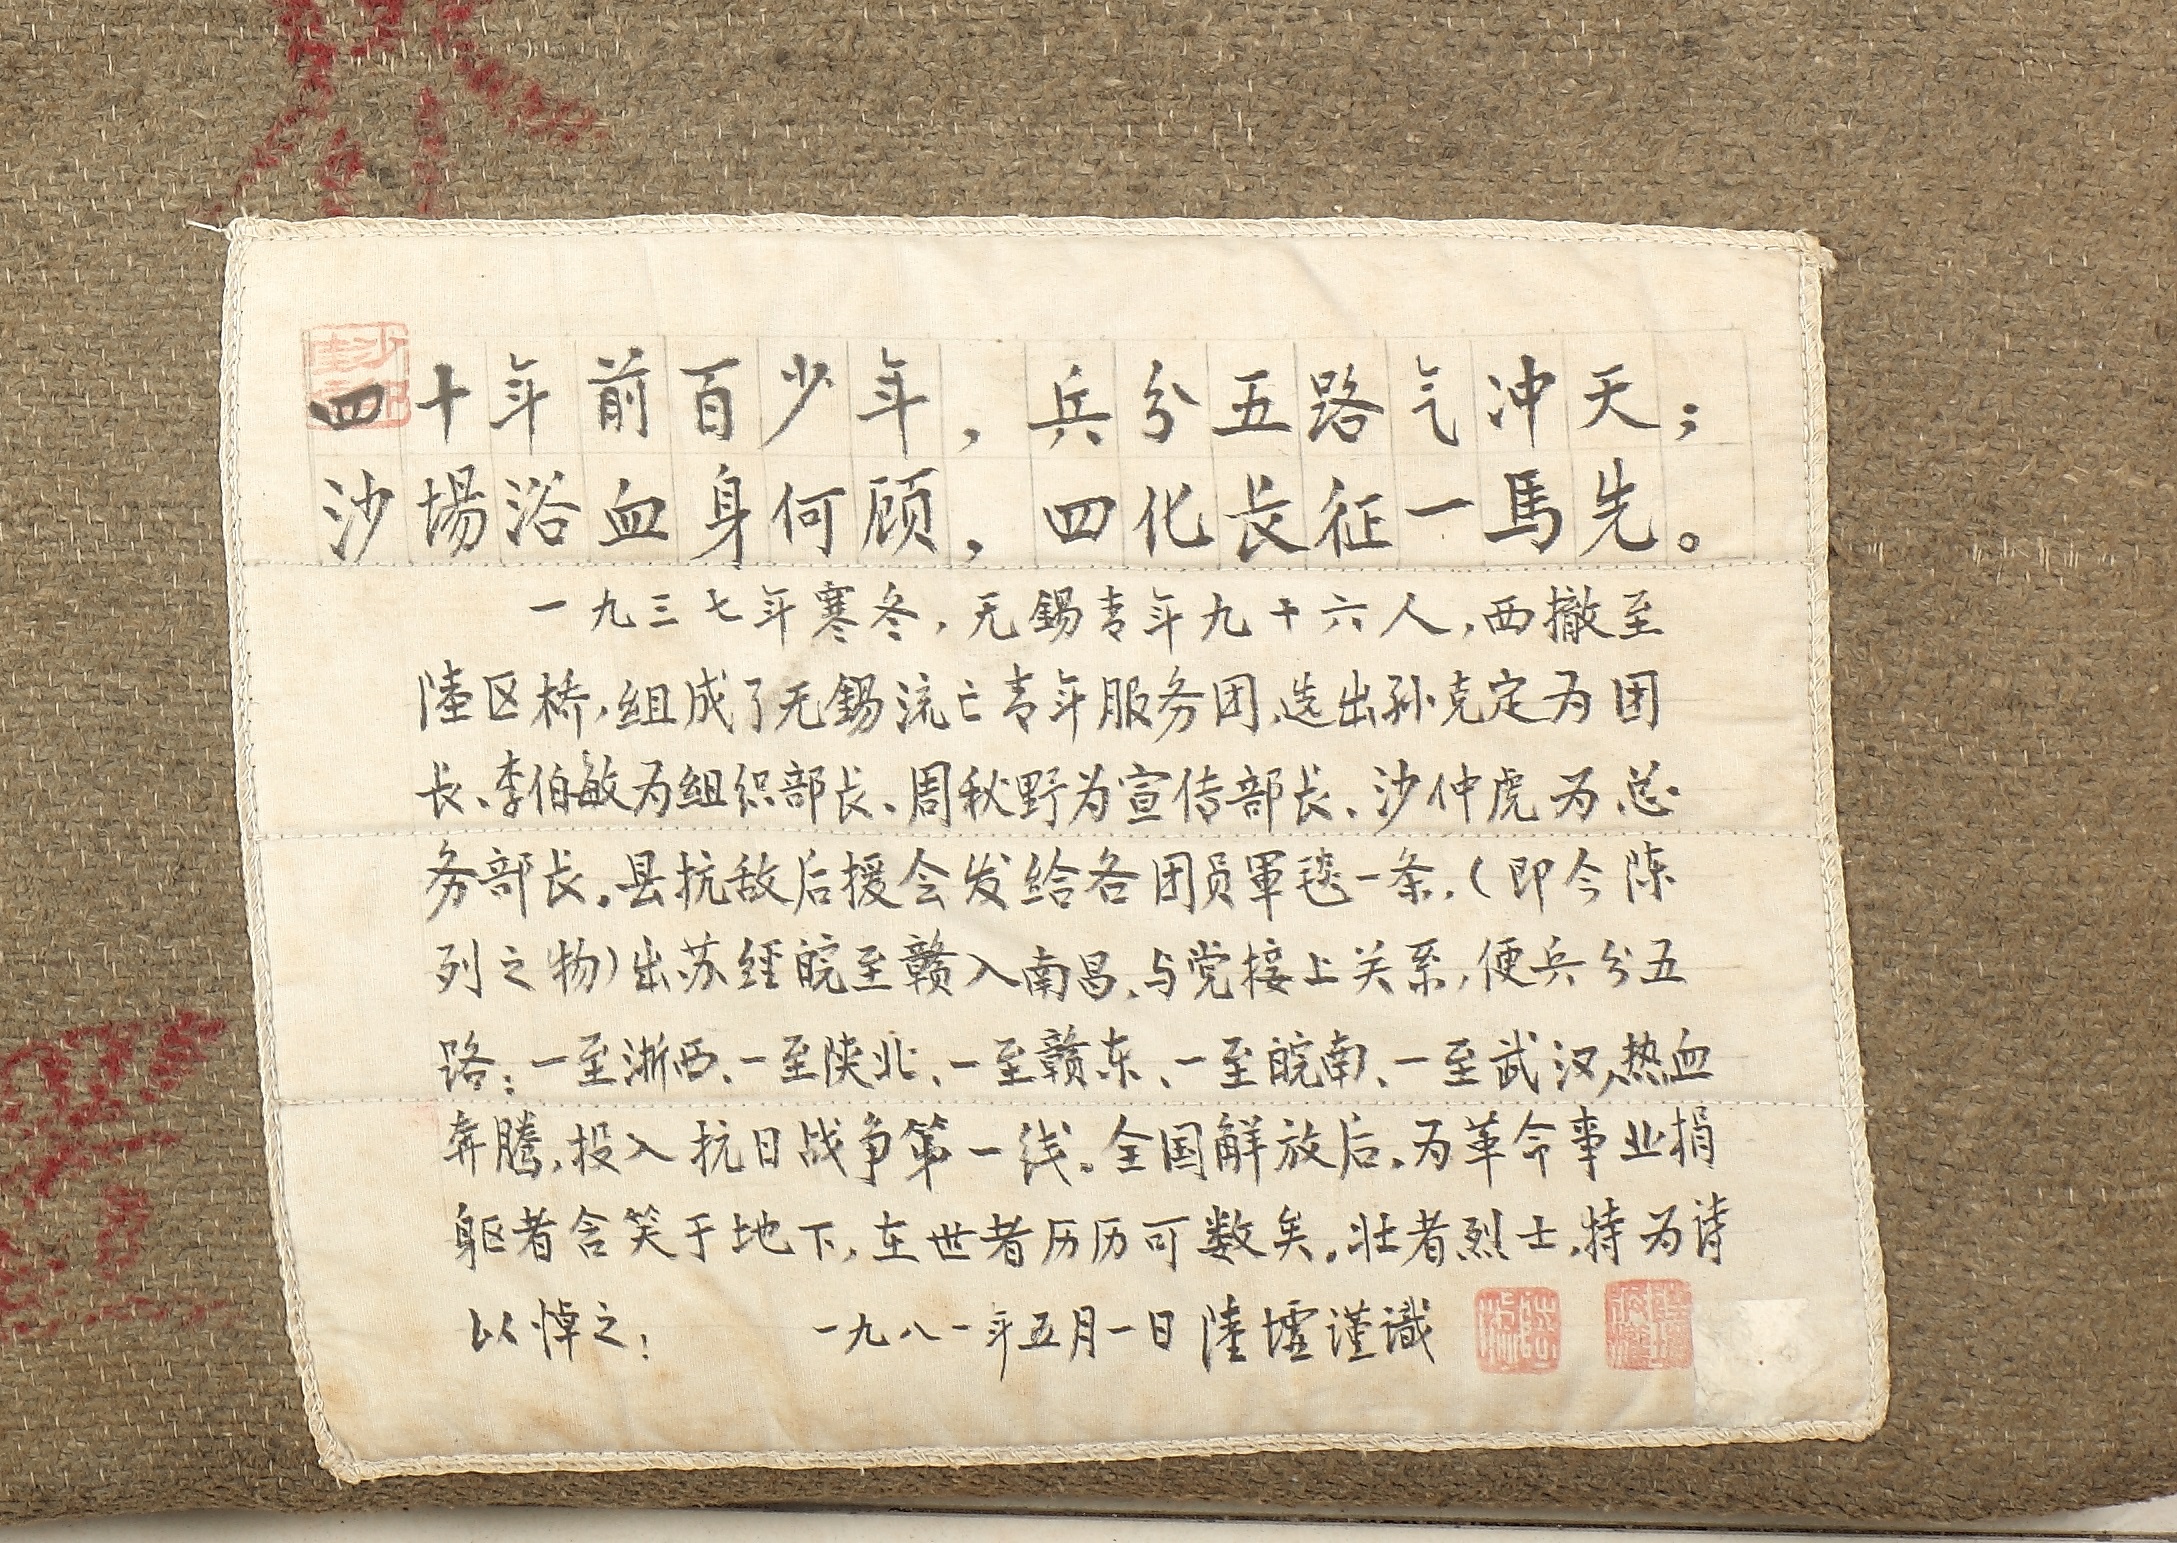 四十年前百少年，兵分五路气冲天；
沙場浴血身何顾，四化长征一馬先。
一九三七年寒冬，无錫青年九十六人，西撤至
陸区桥，组成了无錫流亡青年服务团，选出孙克定为团
长、李伯敏为组织部长、周秋野为宣传部长、沙仲虎为总
务部长。县抗敌后援会发给各团员軍毯一条，（即今陈
列之物）出苏經皖至赣入南昌，与党接上关系，便兵分五
路：一至浙西、一至陕北、一至赣东、一至皖南、一至武汉，热血
奔騰，投入抗日战争第一线。全国解放后，为革命事业捐
躯者含笑于地下，在世者历历可数矣。壮者烈士，特为诗
以悼之：
一九八一年五月一日陸墟谨識